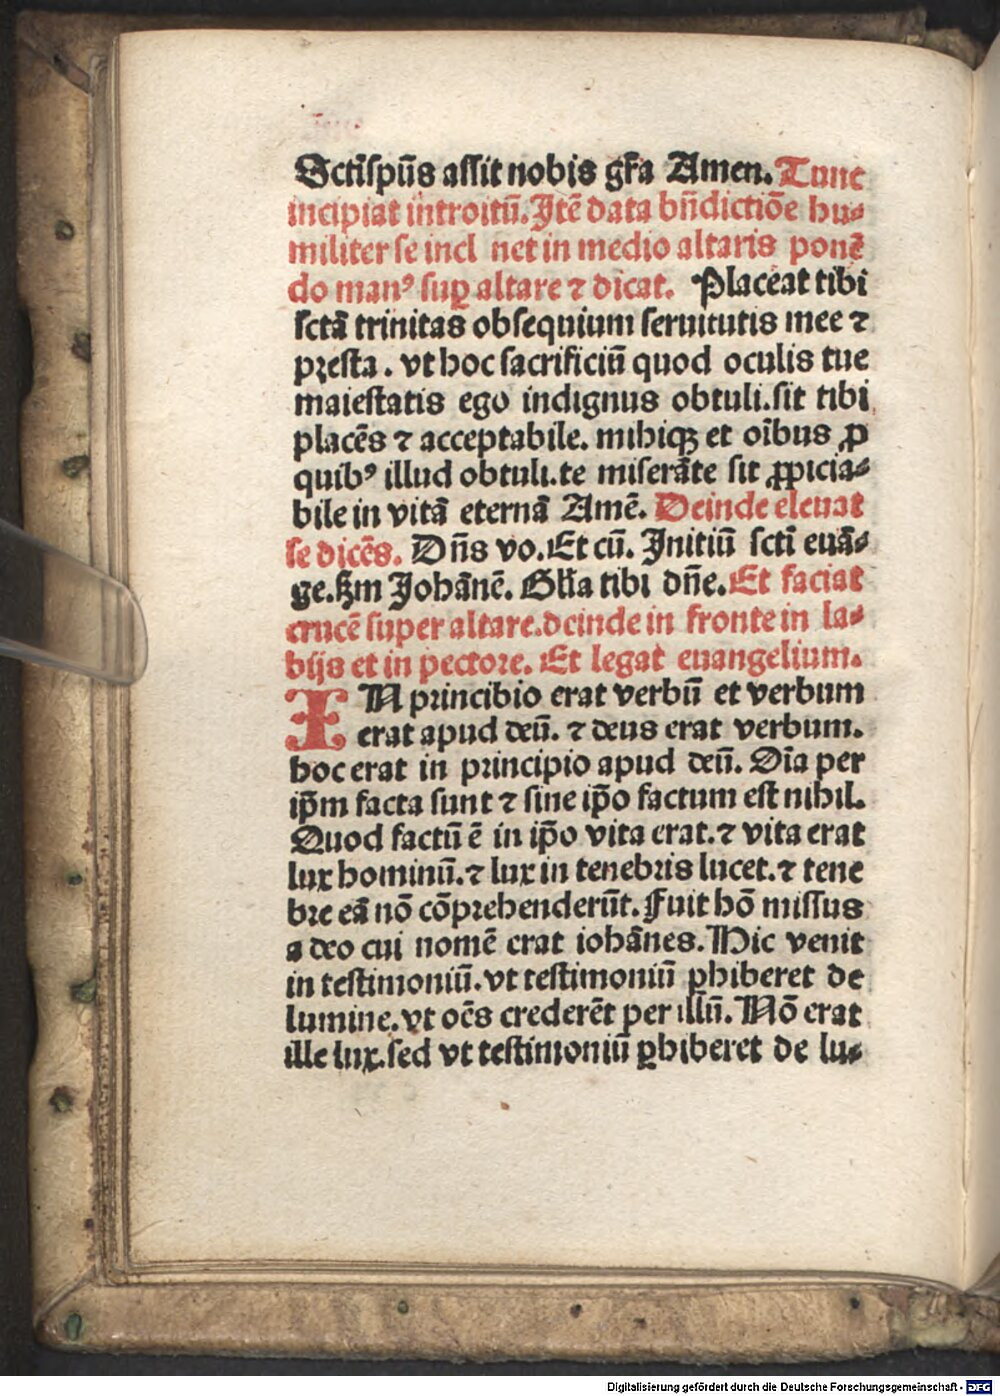 Sctīspūs assit nobis gr̄a Amen. Tunc
incipiat introitū. Itē data bn̄dictiōe hu⸗
militer se incl net in medio altaris ponē
do manꝰ suꝑ altare ⁊ dicat. Placeat tibi
sctā trinitas obsequium seruitutis mee ⁊
presta. vt hoc sacrificiū quod oculis tue
maiestatis ego indignus obtuli. sit tibi
placēs ⁊ acceptabile. mihiqꝫ et oībus ꝓ
quibꝰ illud obtuli. te miserāte sit ꝓpicia⸗
bile in vitā eternā Amē. Deinde eleuat
se dicēs. Dn̄s vo. Et cū. Initiū sctī euā⸗
ge. ẜm Johānē. Gl̄ia tibi dn̄e. Et faciat
crucē super altare. deinde in fronte in la⸗
bijs et in pectore. Et legat euangelium.
IN princibio erat verbū et verbum
erat apud deū. ⁊ deus erat verbum.
hoc erat in principio apud deū. Oīa per
ip̄m facta sunt ⁊ sine ip̄o factum est nihil.
Quod factū ē in ip̄o vita erat. ⁊ vita erat
lux hominū. ⁊ lux in tenebris lucet. ⁊ tene
bre eā nō cōprehenderūt. Fuit hō missus
a deo cui nomē erat iohānes. Hic venit
in testimoniū. vt testimoniū ꝑhiberet de
lumine. vt oēs crederēt per illū. Nō erat
ille lux. sed vt testimoniū ꝑhiberet de lu⸗
Digitalisierung gefördert durch die Deutsche Forschungsgemeinschaft - DFG